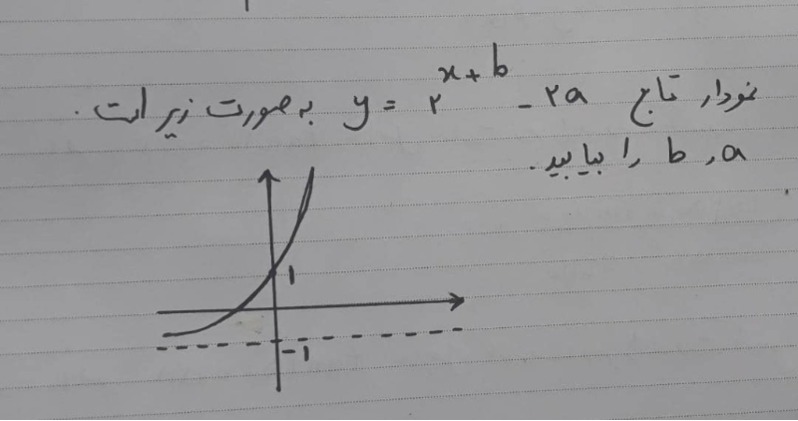 نمودار تابع y = ۲^{x+b} - ۲a به صورت زیر است.
a و b را بیابید.
۱
-۱